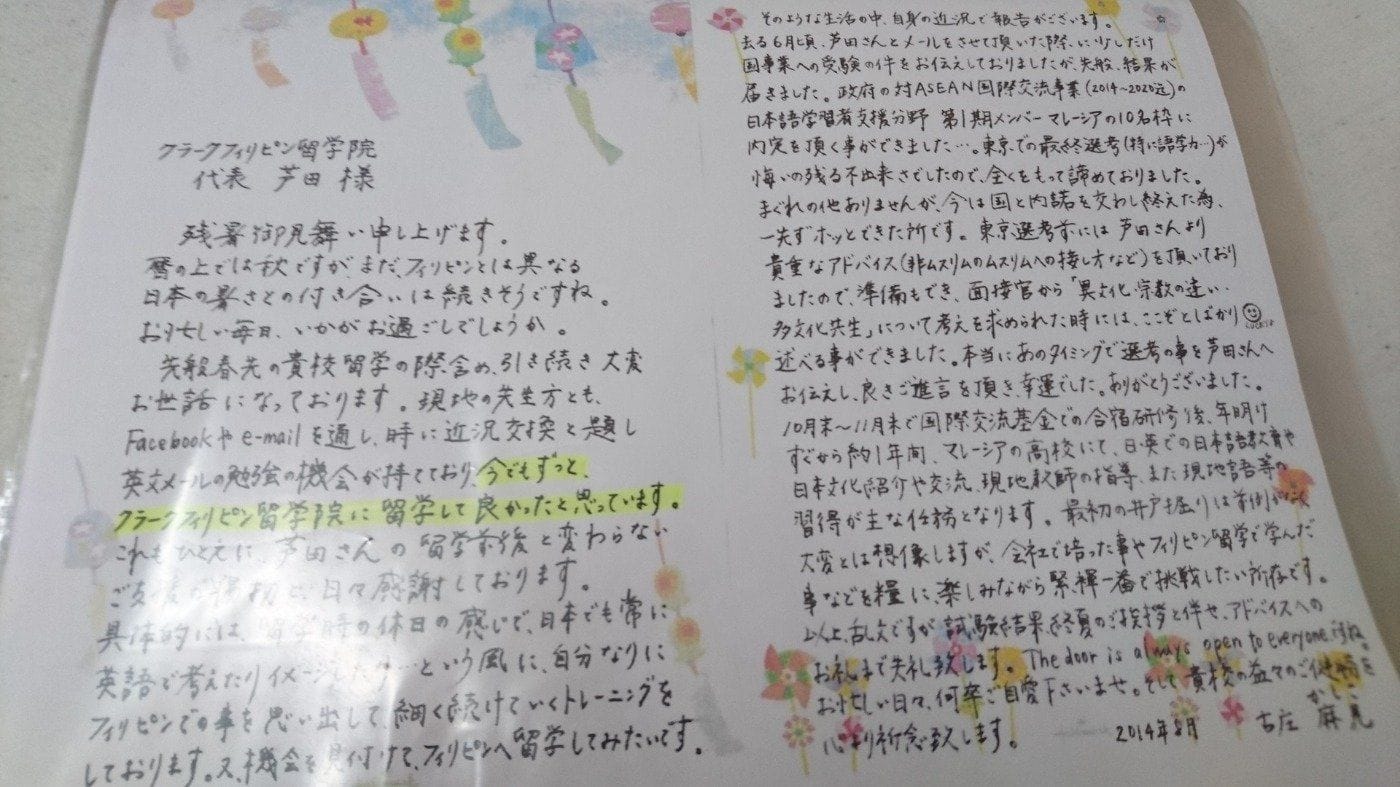 クラークフィリピン留学院
代表 芦田 様
残暑御見舞い申し上げます。
暦の上では秋ですがまだ、フィリピンとは異なる
日本の暑さとの付き合いは続きそうですね。
お忙しい毎日、いかがお過ごしでしょうか。
先般春先の貴校留学の際含め、引き続き大変
お世話になっております。現地の先生方とも、
Facebookやe-mailを通し、時に近況交換と題し
英文メールの勉強の機会が持てており、今でもずっと、
クラークフィリピン留学院に留学して良かったと思っています。
これもひとえに、芦田さんの留学前後と変わらない
ご支援の賜物と、日々感謝しております。
具体的には、留学時の休日の感じで、日本でも常に
英語で考えたりイメージしたり…という風に、自分なりに
フィリピンでの事を思い出して、細く続けていくトレーニングを
しております。又、機会を見付けて、フィリピンへ留学してみたいです。
そのような生活の中、自身の近況で報告がございます。
去る6月頃、芦田さんとメールをさせて頂いた際、に少しだけ
国事業への受験の件をお伝えしておりましたが、先般、結果が
届きました。政府の対ASEAN国際交流事業(2014~2020迄)の
日本語学習者支援分野 第1期メンバー マレーシアの10名枠に
内定を頂く事ができました…。東京での最終選考(特に語学力…)が
悔いの残る不出来さでしたので、全くをもって諦めておりました。
まぐれの他ありませんが、今は国と内諾を交わし終えた為、
一先ずホッとできた所です。東京選考前には芦田さんより
貴重なアドバイス(非ムスリムのムスリムへの接し方など)を頂いており
ましたので、準備もでき、面接官から「異文化・宗教の違い・
多文化共生」について考えを求められた時には、ここぞとばかり
述べる事ができました。本当にあのタイミングで選考の事を芦田さんへ
お伝えし、良きご進言を頂き、幸運でした。ありがとうございました。
10月末~11月末で国際交流基金での合宿研修後、年明け
すぐから約1年間、マレーシアの高校にて、日・英での日本語教育や
日本文化紹介や交流、現地教師の指導、また現地語等の
習得が主な任務となります。最初の井戸掘りは前例がなく
大変とは想像しますが、会社で培った事やフィリピン留学で学んだ
事などを糧に、楽しみながら緊褌一番で挑戦したい所存です。
以上、乱文ですが、試験結果、終夏のご挨拶と併せ、アドバイスへの
お礼まで失礼致します。The door is always open to everyone.ですね。
お忙しい日々、何卒ご自愛下さいませ。そして貴校の益々のご健勝を
心より祈念致します。
かしこ
2014年8月 古庄 麻見